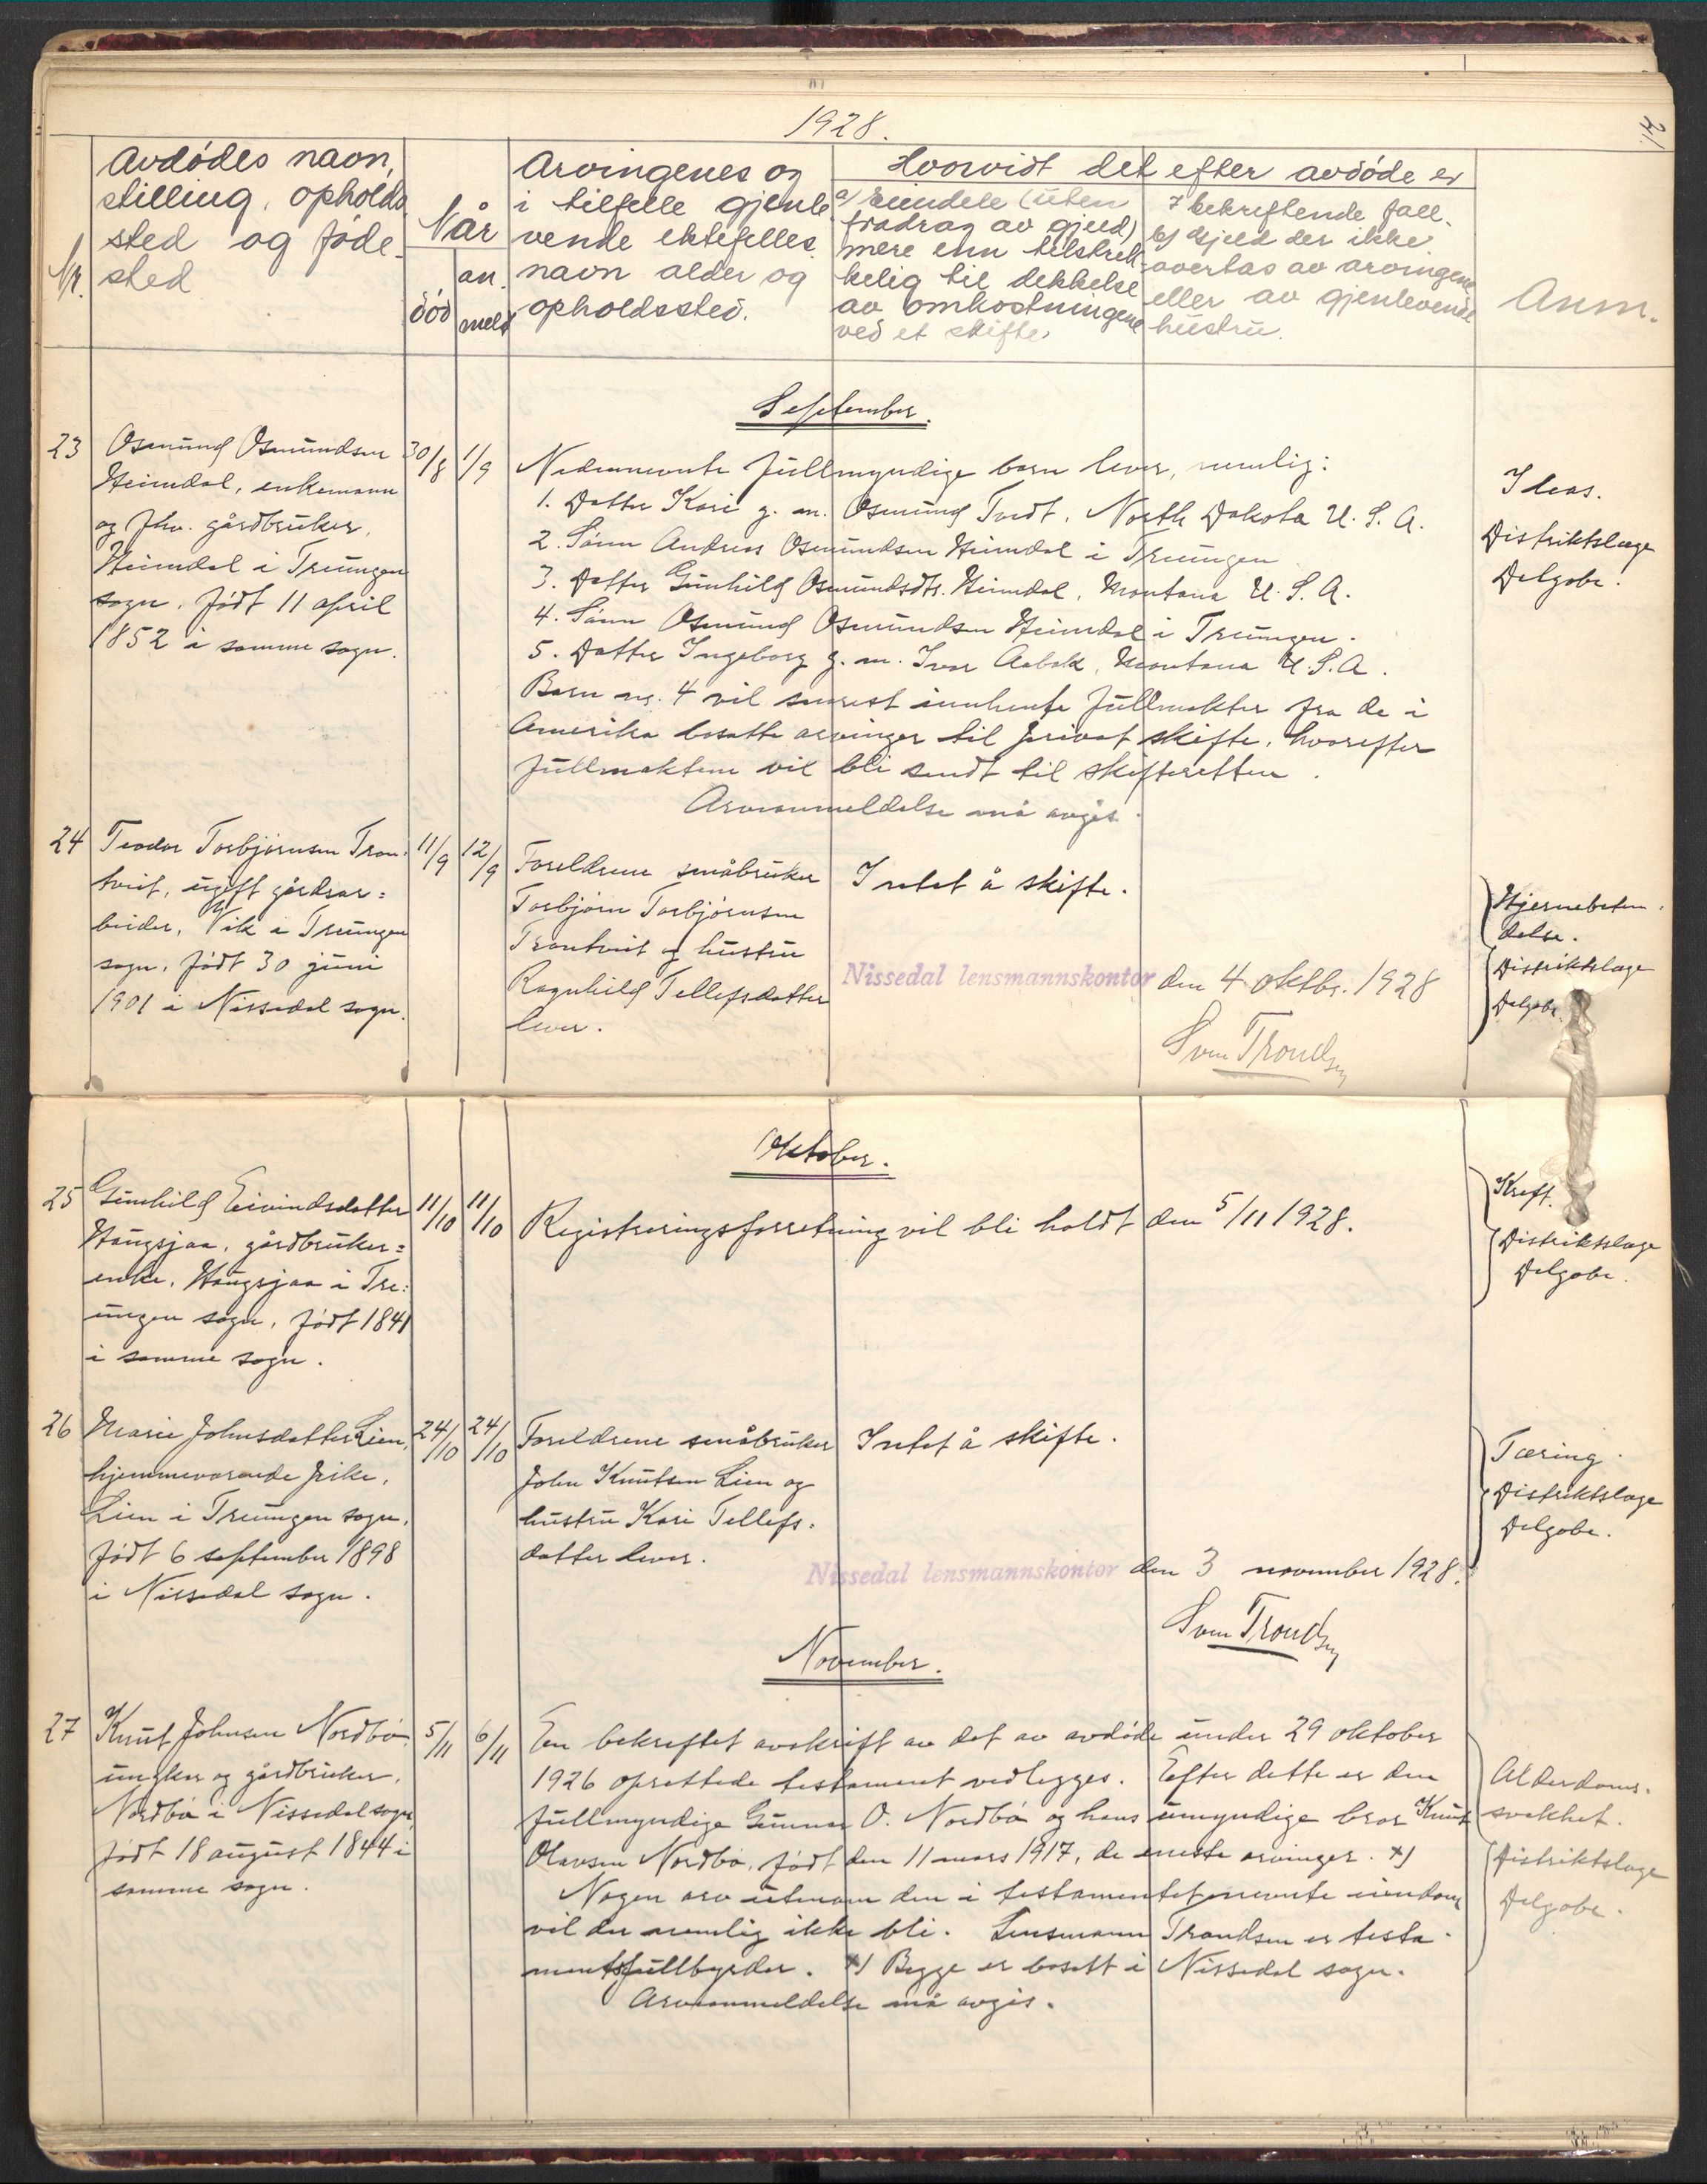 1928.
21
Nr.
Avdødes navn,
stilling, opholds
sted ogføde-
sted
Når
død
an-
meldt
Arvingenes og
i tilfelle gjenle-
vende ektefelles
navn alder og
opholdssted.
Hvorvidt det efter avdøde er
a) eiendele (uten
fradrag av gjeld)
mere enn tilstrek-
kelig til dekkelse
av omkostningene
ved et skifte,
I bekreftende fall.
b) Gjeld der ikke
overtas av arvingene
eller av gjenlevende
hustru.
Anm.
September.
23
Osmund Osmundsen
Heimdal, enkemann
og fhv. gårdbruker,
Heimdal i Treungen
sogn. født 11 april
1852 i samme sogn.
30/8
1/9
Nedennevnte fullmyndige barn lever, nemlig:
1. Datter Kari g. m. Osmund Tvedt, North Dakota U. S. A.
2. Sønn Andres Osmundsen Heimdal i Treungen
3. Datter Gunhild Osmundsdtr. Heimdal, Montana U. S. A.
4. Sønn Osmund Osmundsen Heimdal i Treungen.
5. Datter Ingeborg g. m. Ivar Aabak, Montana U. S. A.
Barn nr. 4 vil snarest innhente fullmakter fra de i
Amerika bosatte arvinger til privat skifte, hvorefter
fullmaktene vil bli sendt til skifteretten.
Arveanmeldelse må avgis.
Ileus.
Distriktslæge
Delgobe.
24
Teodor Torbjørnsen Tron-
tveit, ugift gårdsar=
beider, Vik i Treungen
sogn, født 30 juni
1901 i Nissedal sogn.
11/9
12/9
Foreldrene småbruker
Torbjørn Torbjørnsen
Trontveit og hustru
Ragnhild Tellefsdatter
lever.
Intet å skifte.
Hjernebeten-
delse.
Distriktslæge
Delgobe.
Nissedal lensmannskontor den 4 oktbr. 1928
Sven Trondsen
Oktober.
25
Gunhild Eivindsdatter
Haugsjaa, gårdbruker=
enke, Haugsjaa i Tre=
ungen sogn, født 1841
i samme sogn.
11/10
11/10
Registreringsforretning vil bli holdt den 5/11 1928.
Kreft.
Distriktslæge
Delgobe.
26
Marie Johnsdatter Lien,
hjemmeværende pike,
Lien i Treungen sogn,
født 6 september 1898
i Nissedal sogn.
24/10
24/10
Foreldrene småbruker
John Knutsen Lien og
hustru Kari Tellefs-
datter lever.
Intet å skifte.
Tæring.
Distriktslæge
Delgobe.
Nissedal lensmannskontor den 3 november 1928.
Sven Trondsen
November.
27
Knut Johnsen Nordbø,
ungkar og gårdbruker,
Nordbø i Nissedal sogn,
født 18 august 1844 i
samme sogn.
5/11
6/11
En bekreftet avskrift av det av avdøde under 29 oktober
1926 oprettede testament vedlegges. Efter dette er den
fullmyndige Gunnar O. Nordbø og hans umyndige bror Knut
Olavsen Nordbø, født den 11 mars 1917, de eneste arvinger. x)
Nogen arv utenom den i testamentet nevnte eiendom
vil der nemlig ikke bli. Lensmann Trondsen er testa-
mentsfullbyrder. x) Begge er bosatt i Nissedal sogn.
Arveanmeldelse må avgis.
Alderdoms-
svakhet.
Distriktslæge
Delgobe.